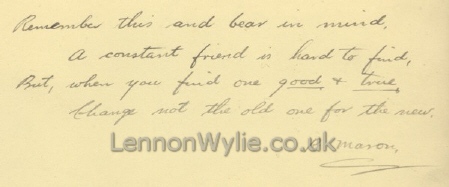 Remember this and bear in mind,
A constant friend is hard to find,
But, when you find one good & true,
Change not the old one for the new.
LennonWylie.co.uk
Mason,